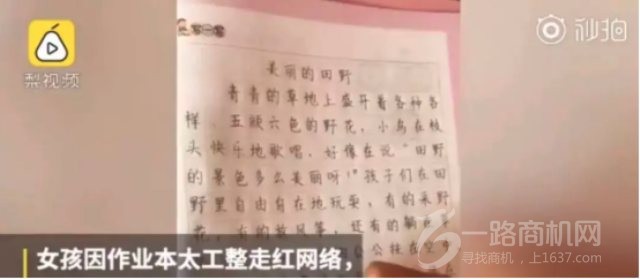 梨视频
秒拍
写一写
美丽的田野
青青的草地上盛开着各种各
样、五颜六色的野花,小鸟在枝
头快乐地歌唱,好像在说“田野
的景色多么美丽呀!”孩子们在田
野里自由自在地玩耍,有的采野
花,有的放风筝,还有的躺
公公挂在空中
一路商机网
寻找商机,上1637.com
女孩因作业本太工整走红网络,